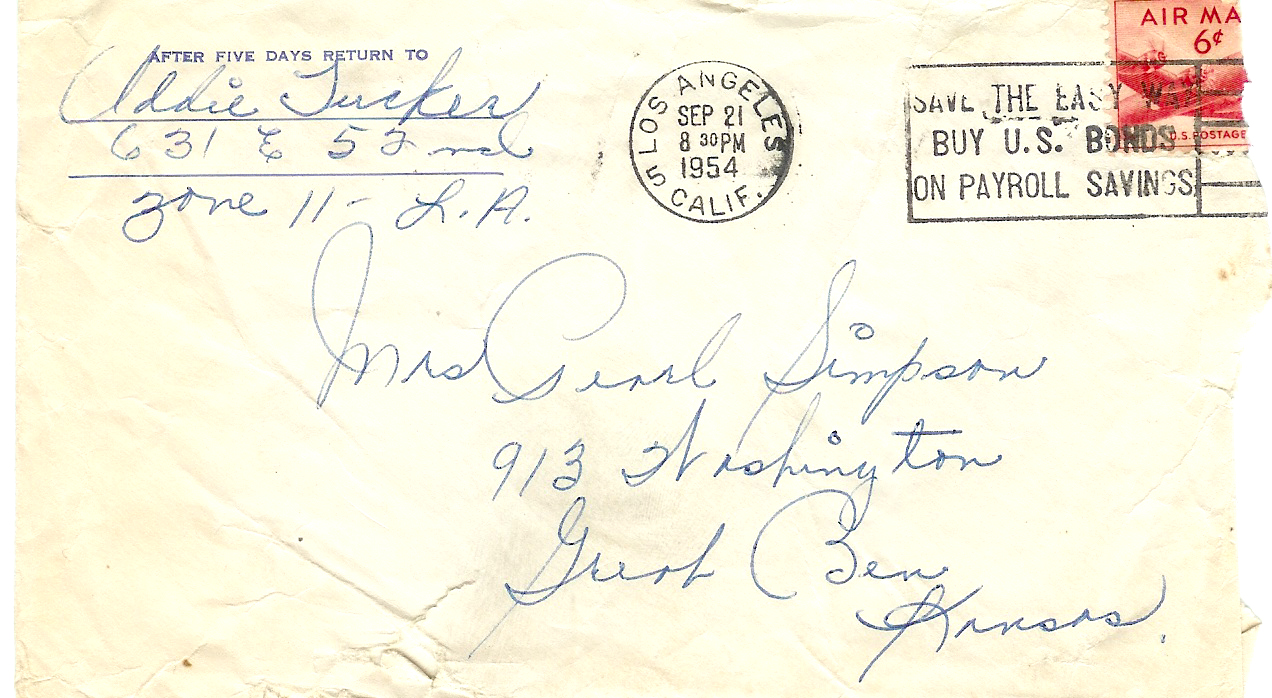 AFTER FIVE DAYS RETURN TO
Addie Tucker
631 E 52nd
zone 11 - L.A.
LOS ANGELES
SEP 21
8 30 PM
1954
5 CALIF.
AIR MA
6¢
U.S. POSTAGE
SAVE THE EASY WAY
BUY U.S. BONDS
ON PAYROLL SAVINGS
Mrs Pearl Simpson
913 Washington
Great Ben
Kansas.